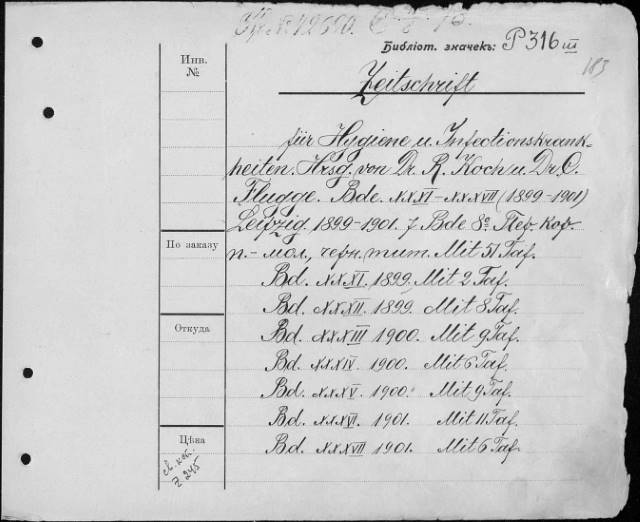 Библіот. значекъ: P 316 III
183
Инв.
№
Zeitschrift
für Hygiene u. Infectionskrank-
heiten. Hrsg. von Dr. R. Koch u. Dr. C.
Flugge. Bde. XXXI-XXXVII (1899-1901)
Leipzig. 1899-1901. 7 Bde 8º. Пер. кор.
п.-мол., черн. тит. Mit 51 Taf.
По заказу
Bd. XXXI. 1899. Mit 2 Taf.
Bd. XXXII. 1899. Mit 8 Taf.
Откуда
Bd. XXXIII 1900. Mit 9 Taf.
Bd. XXXIV. 1900. Mit 6 Taf.
Bd. XXXV. 1900. Mit 9 Taf.
Bd. XXXVI. 1901. Mit 11 Taf.
Цѣна
Bd. XXXVII 1901. Mit 6 Taf.
Z 245